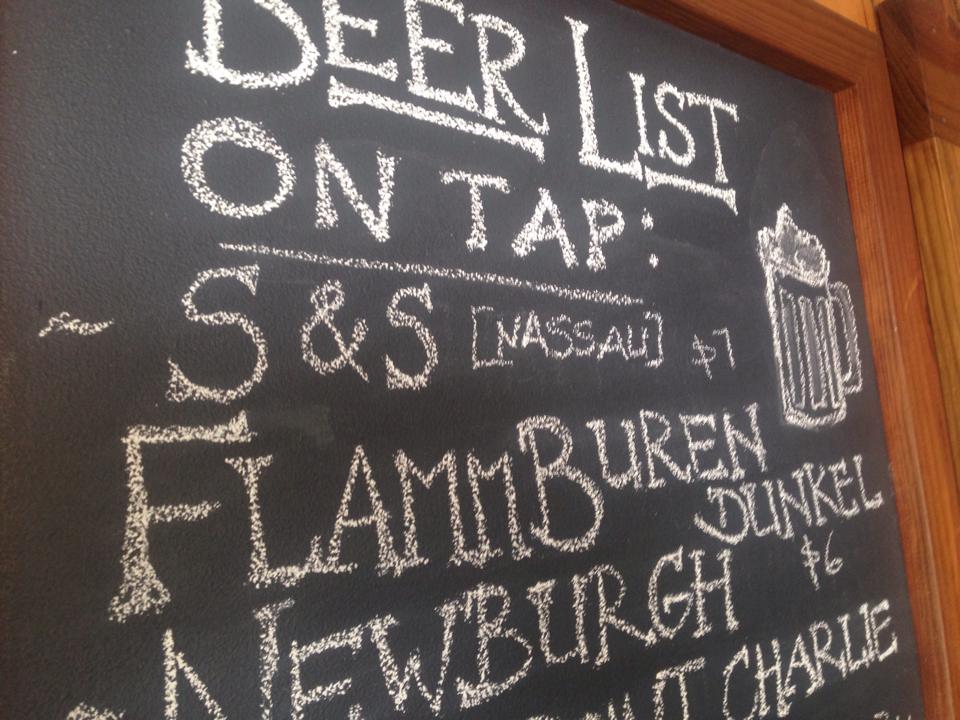 BEER LIST
ON TAP:
~ S & S [NASSAU] $7
FLAMMBUREN
DUNKEL
$6
NEWBURGH
CHARLIE